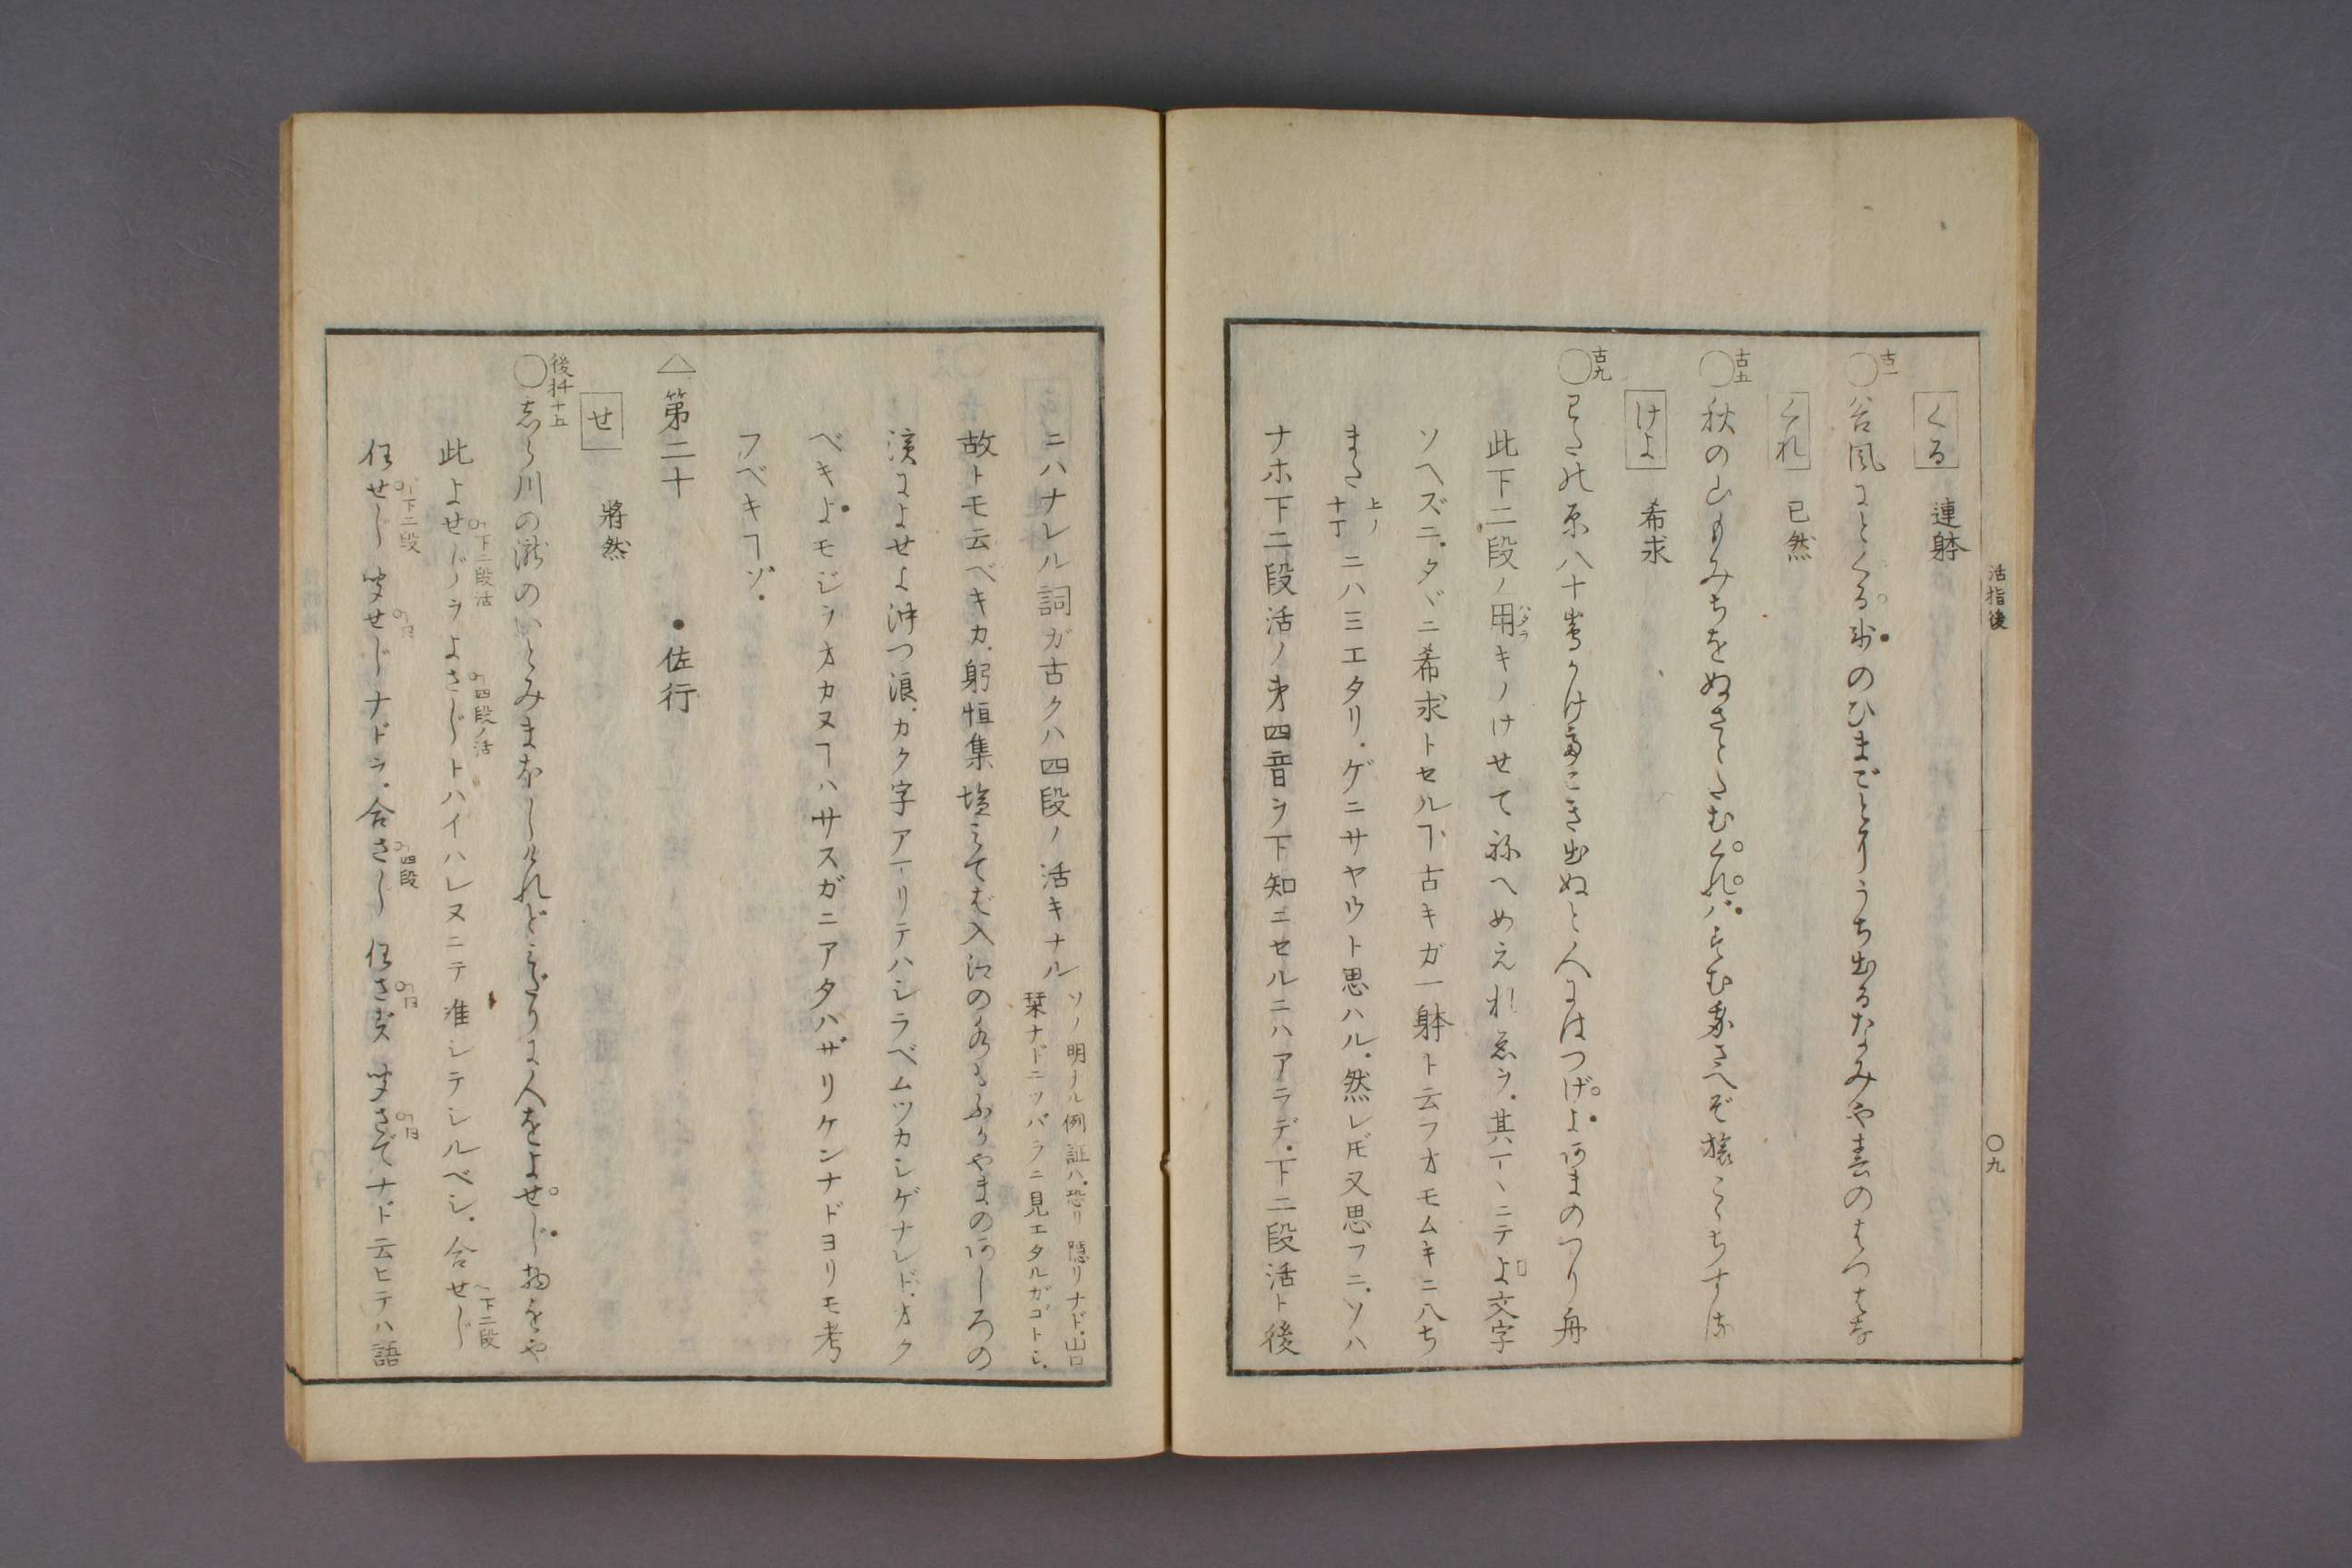 くる 連躰
古一
○谷風にとくる氷のひまごとにうち出るなみや春のはつはな
くれ 已然
古五
○秋の山もみちをぬさとたむくればすむ我さへぞ旅こゝちする
けよ 希求
古九
○わたの原八十嶋かけてこき出ぬと人にはつげよあまのつり舟
此下二段ノ用キノけせて祢へめえれゑヲ.其
ハタラ
ニテよ文字
ソヘズニ.タヾニ希求トセルヿ古キガ一躰ト云フオモムキニハち
また
上ノ
十丁
ニハミエタリ.ゲニサヤウト思ハル.然レ𪜈又思フニ.ソハ
ナホ下二段活ノ㐧四音ヲ下知ニセルニハアラデ.下二段活ト後
活指後
○九
ニハナレル詞ガ古クハ四段ノ活キナル
ソノ明ナル例証ハ.恐リ 隠リナド.山口
栞ナドニツバラニ見エタルガゴトシ.
故トモ云ベキカ.躬恒集塩みてば入江の水もふかやまのあしろの
濱によせよ沖つ浪.カク字アマリテハシラベムツカシゲナレド.オク
ベキよモジヲオカヌヿハサスガニアタハザリケンナドヨリモ考
フベキヿゾ.
△第二十 ●佐行
せ 將然
後拾十五
○志ら川の瀧のいとみまほしけれどみだりに人をよせじ物をや
此よせじヲよさじトハイハレヌニテ准シテシルベシ.合せじ
下二段活
四段ノ活
下二段
任せじ 交せじナドヲ.合さじ 任さず 交さでナド云ヒテハ語
下二段
同
四段
同
同